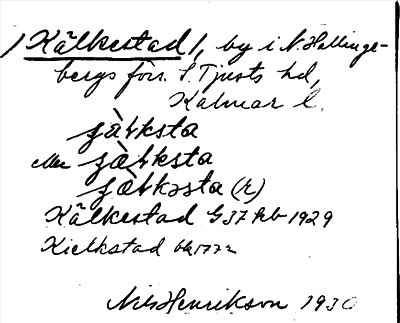 /Kälkestad/, by i N. Hallinge-
bergs förs. S. Tjusts hd,
Kalmar l.
ksta
eller ksta
sta (r)
Kälkestad G37 hb 1929
Kielkstad
Nils Henrikson 1930